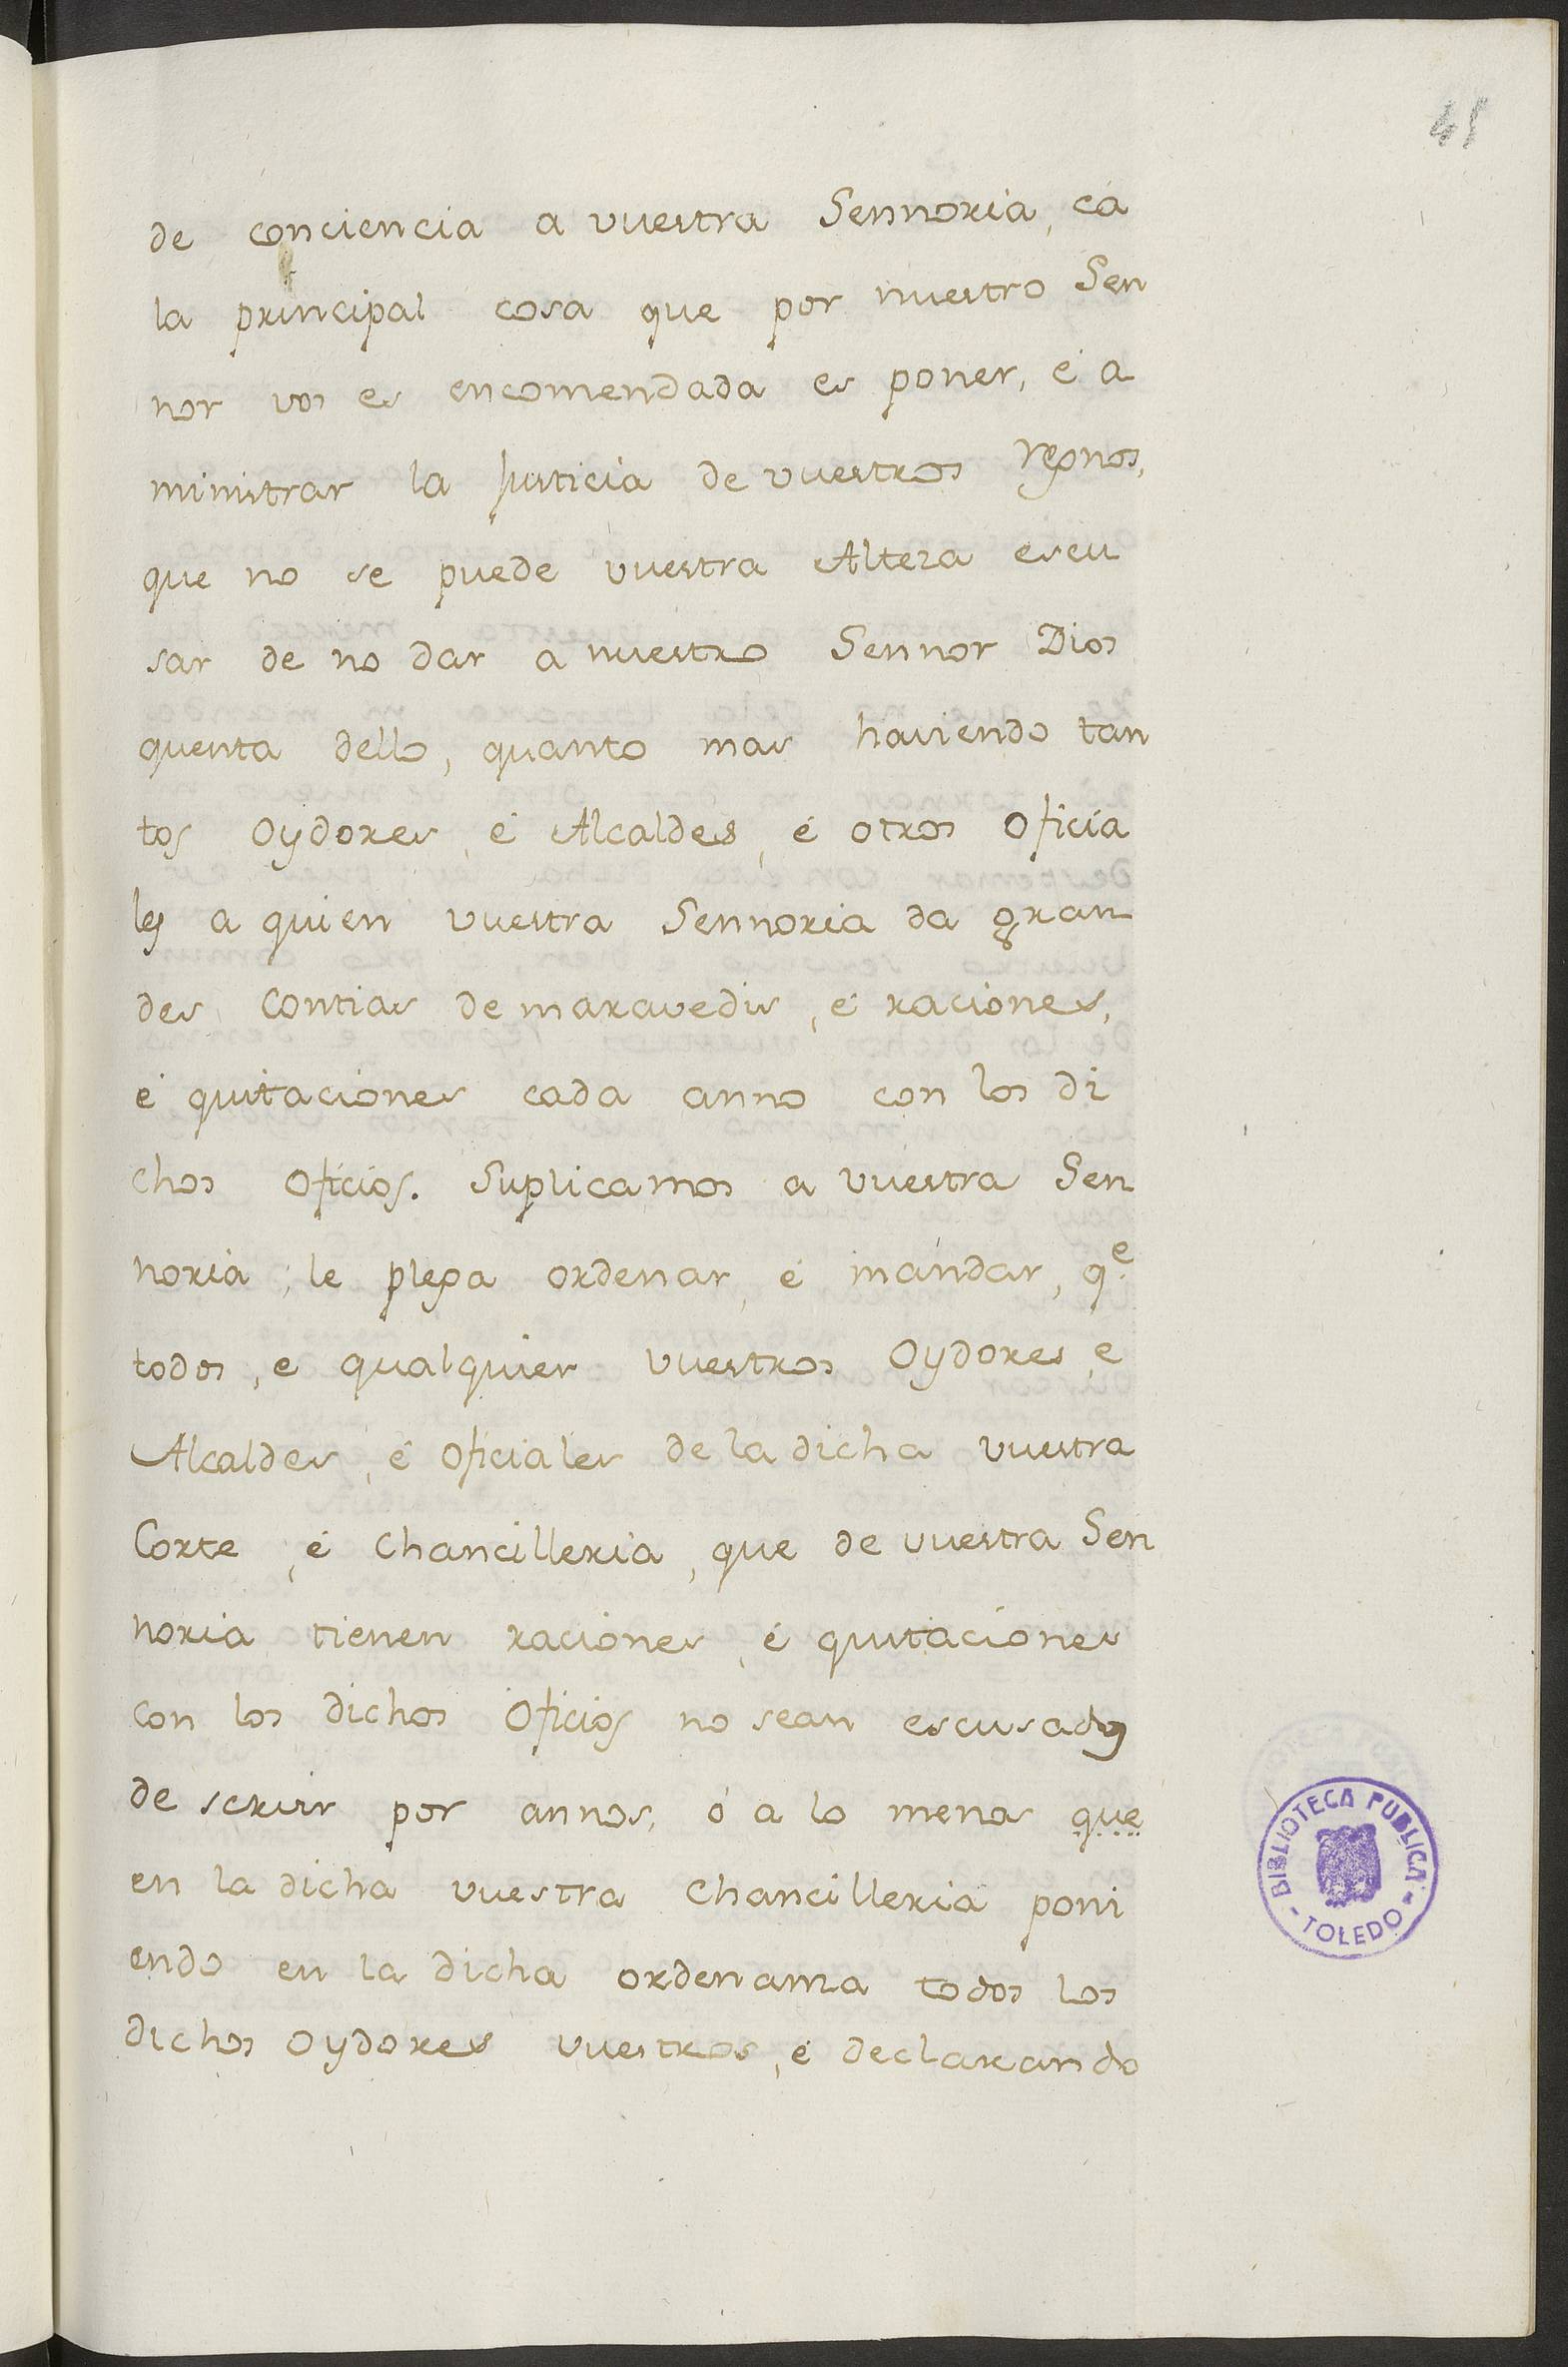 45
de conciencia a vuestra Sennoria, ca
la principal cosa que por nuestro Sen
nor vos es encomendada es poner, é a
ministrar la justicia de vuestros regnos,
que no se puede vuestra Alteza escu
sar de no dar a nuestro Sennor Dios
quenta dello, quanto mas haviendo tan
tos Oydores, é Alcaldes, é otros Oficia
les a quien vuestra Sennoria da gran
des contias de maravedis, é raciones,
é quitaciones cada anno con los di
chos Oficios. Suplicamos a vuestra Sen
noria, le plega ordenar, é mandar, q.e
todos, e qualquier vuestros Oydores, e
Alcaldes, é Oficiales de la dicha vuestra
Corte, é Chancilleria, que de vuestra Sen
noria tienen raciones, é quitaciones
con los dichos Oficios no sean escusados
de servir por annos, ó a lo menos que
en la dicha vuestra Chancilleria poni
endo en la dicha ordenanza todos los
dichos Oydores vuestros, é declarando
BIBLIOTECA PUBLICA - TOLEDO -